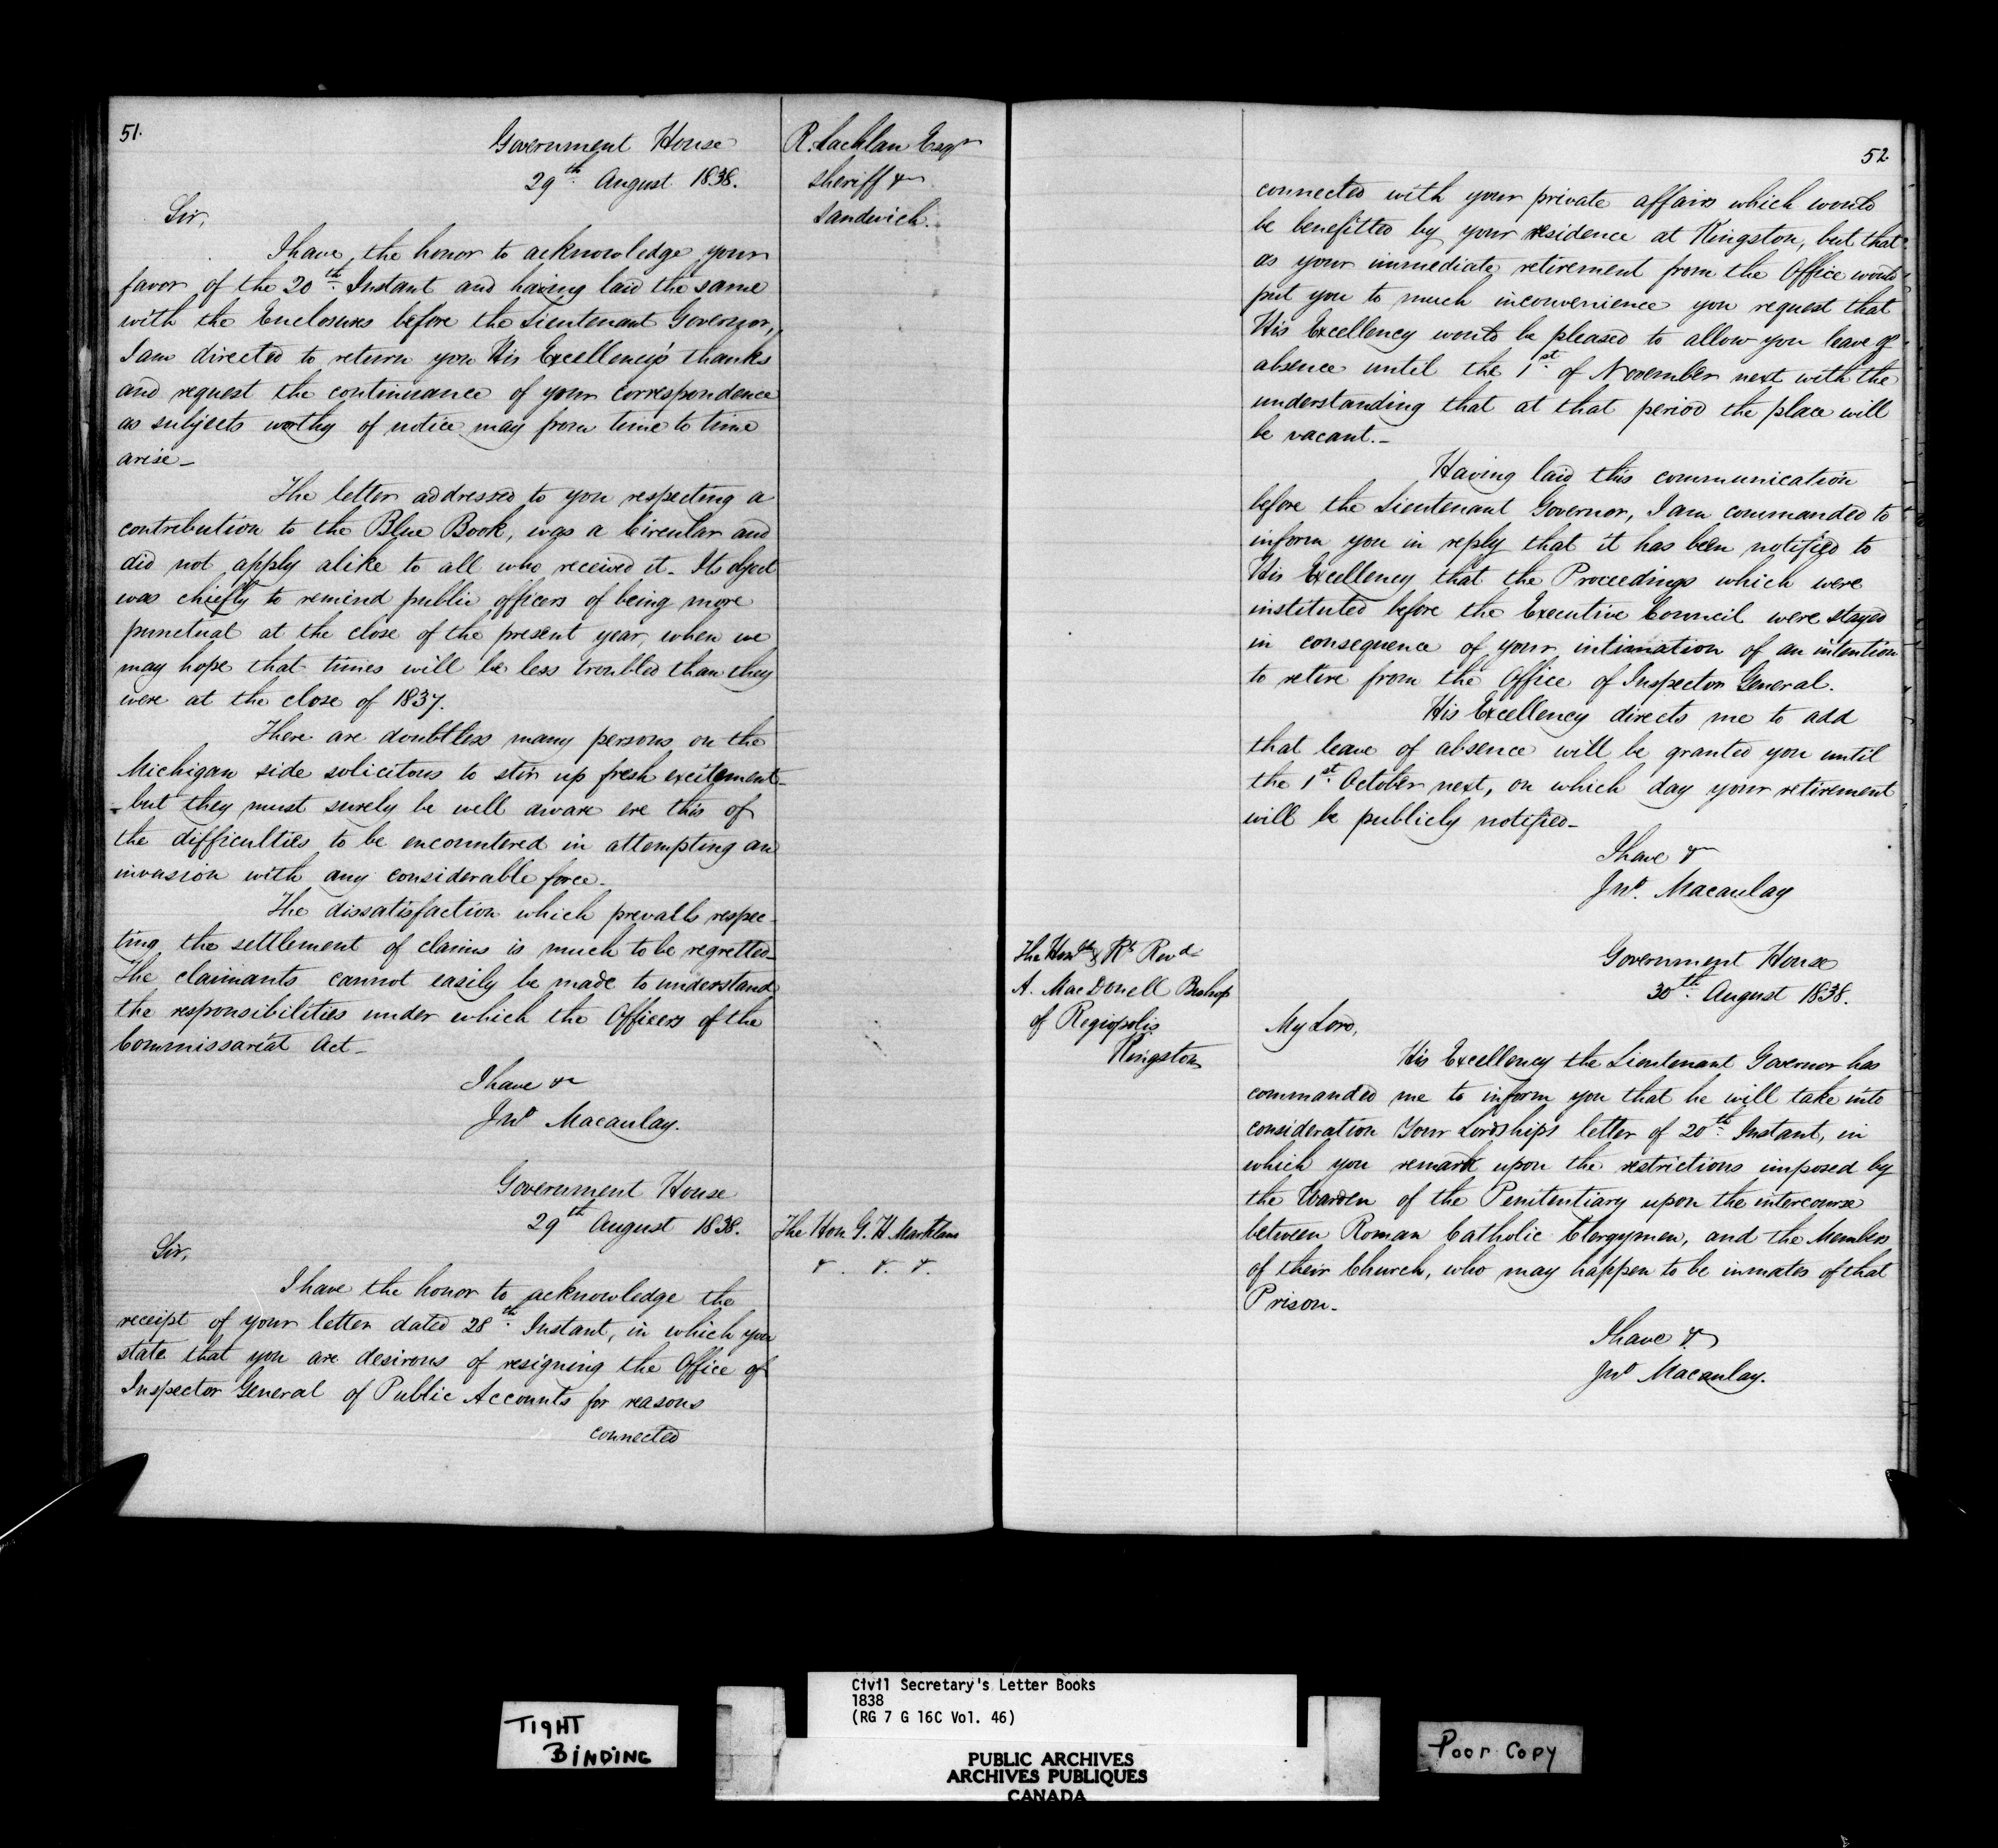 51.
Government House
29th. August 1838.
R. Lachlan Esqr
Sheriff &c
Sandwich.
Sir,
I have the honor to acknowledge your
favor of the 20th. Instant and having laid the same
with the Enclosures before the Lieutenant Governor,
I am directed to return you His Excellency's thanks
and request the continuance of your correspondence
as subjects worthy of notice may from time to time
arise_
The letter addressed to you respecting a
contribution to the Blue Book, was a Circular and
did not apply alike to all who received it_ Its object
was chiefly to remind public officers of being more
punctual at the close of the present year, when we
may hope that times will be less troubled than they
were at the close of 1837.
There are doubtless many persons on the
Michigan side solicitous to stir up fresh excitement_
but they must surely be well aware ere this of
the difficulties to be encountered in attempting an
invasion with any considerable force_
The dissatisfaction which prevails respec-
ting the settlement of claims is much to be regretted_
The claimants cannot easily be made to understand
the responsibilities under which the Officers of the
Commissariat Act_
I have &c
Jno Macaulay.
Government House
29th August 1838.
The Hon G. H. Markland
&. &. &.
Sir,
I have the honor to acknowledge the
receipt of your letter dated 28th. Instant, in which you
state that you are desirous of resigning the Office of
Inspector General of Public Accounts for reasons
connected
52
connected with your private affairs which would
be benefitted by your residence at Kingston, but that
as your immediate retirement from the Office would
put you to much inconvenience you request that
His Excellency would be pleased to allow you leave of
absence until the 1st. of November next with the
understanding that at that period the place will
be vacant._
Having laid this communication
before the Lieutenant Governor, I am commanded to
inform you in reply that it has been notified to
His Excellency that the Proceedings which were
instituted before the Executive Council were stayed
in consequence of your intimation of an intention
to retire from the Office of Inspector General.
His Excellency directs me to add
that leave of absence will be granted you until
the 1st. October next, on which day your retirement
will be publicly notified_
I have &c
Jno. Macaulay
The Honble & Rt Revd
A. MacDonell Bishop
of Regiopolis
Kingston
Government House
30th. August 1838.
My Lord,
His Excellency the Lieutenant Governor has
commanded me to inform you that he will take into
consideration Your Lordships letter of 20th. Instant, in
which you remark upon the restrictions imposed by
the Warden of the Penitentiary upon the intercourse
between Roman Catholic Clergymen, and the Members
of their Church, who may happen to be inmates of that
Prison_
I have &c
Jno Macaulay.
Civil Secretary's Letter Books
1838
(RG 7 G 16C Vol. 46)
TIGHT
BINDING
PUBLIC ARCHIVES
ARCHIVES PUBLIQUES
CANADA
Poor Copy